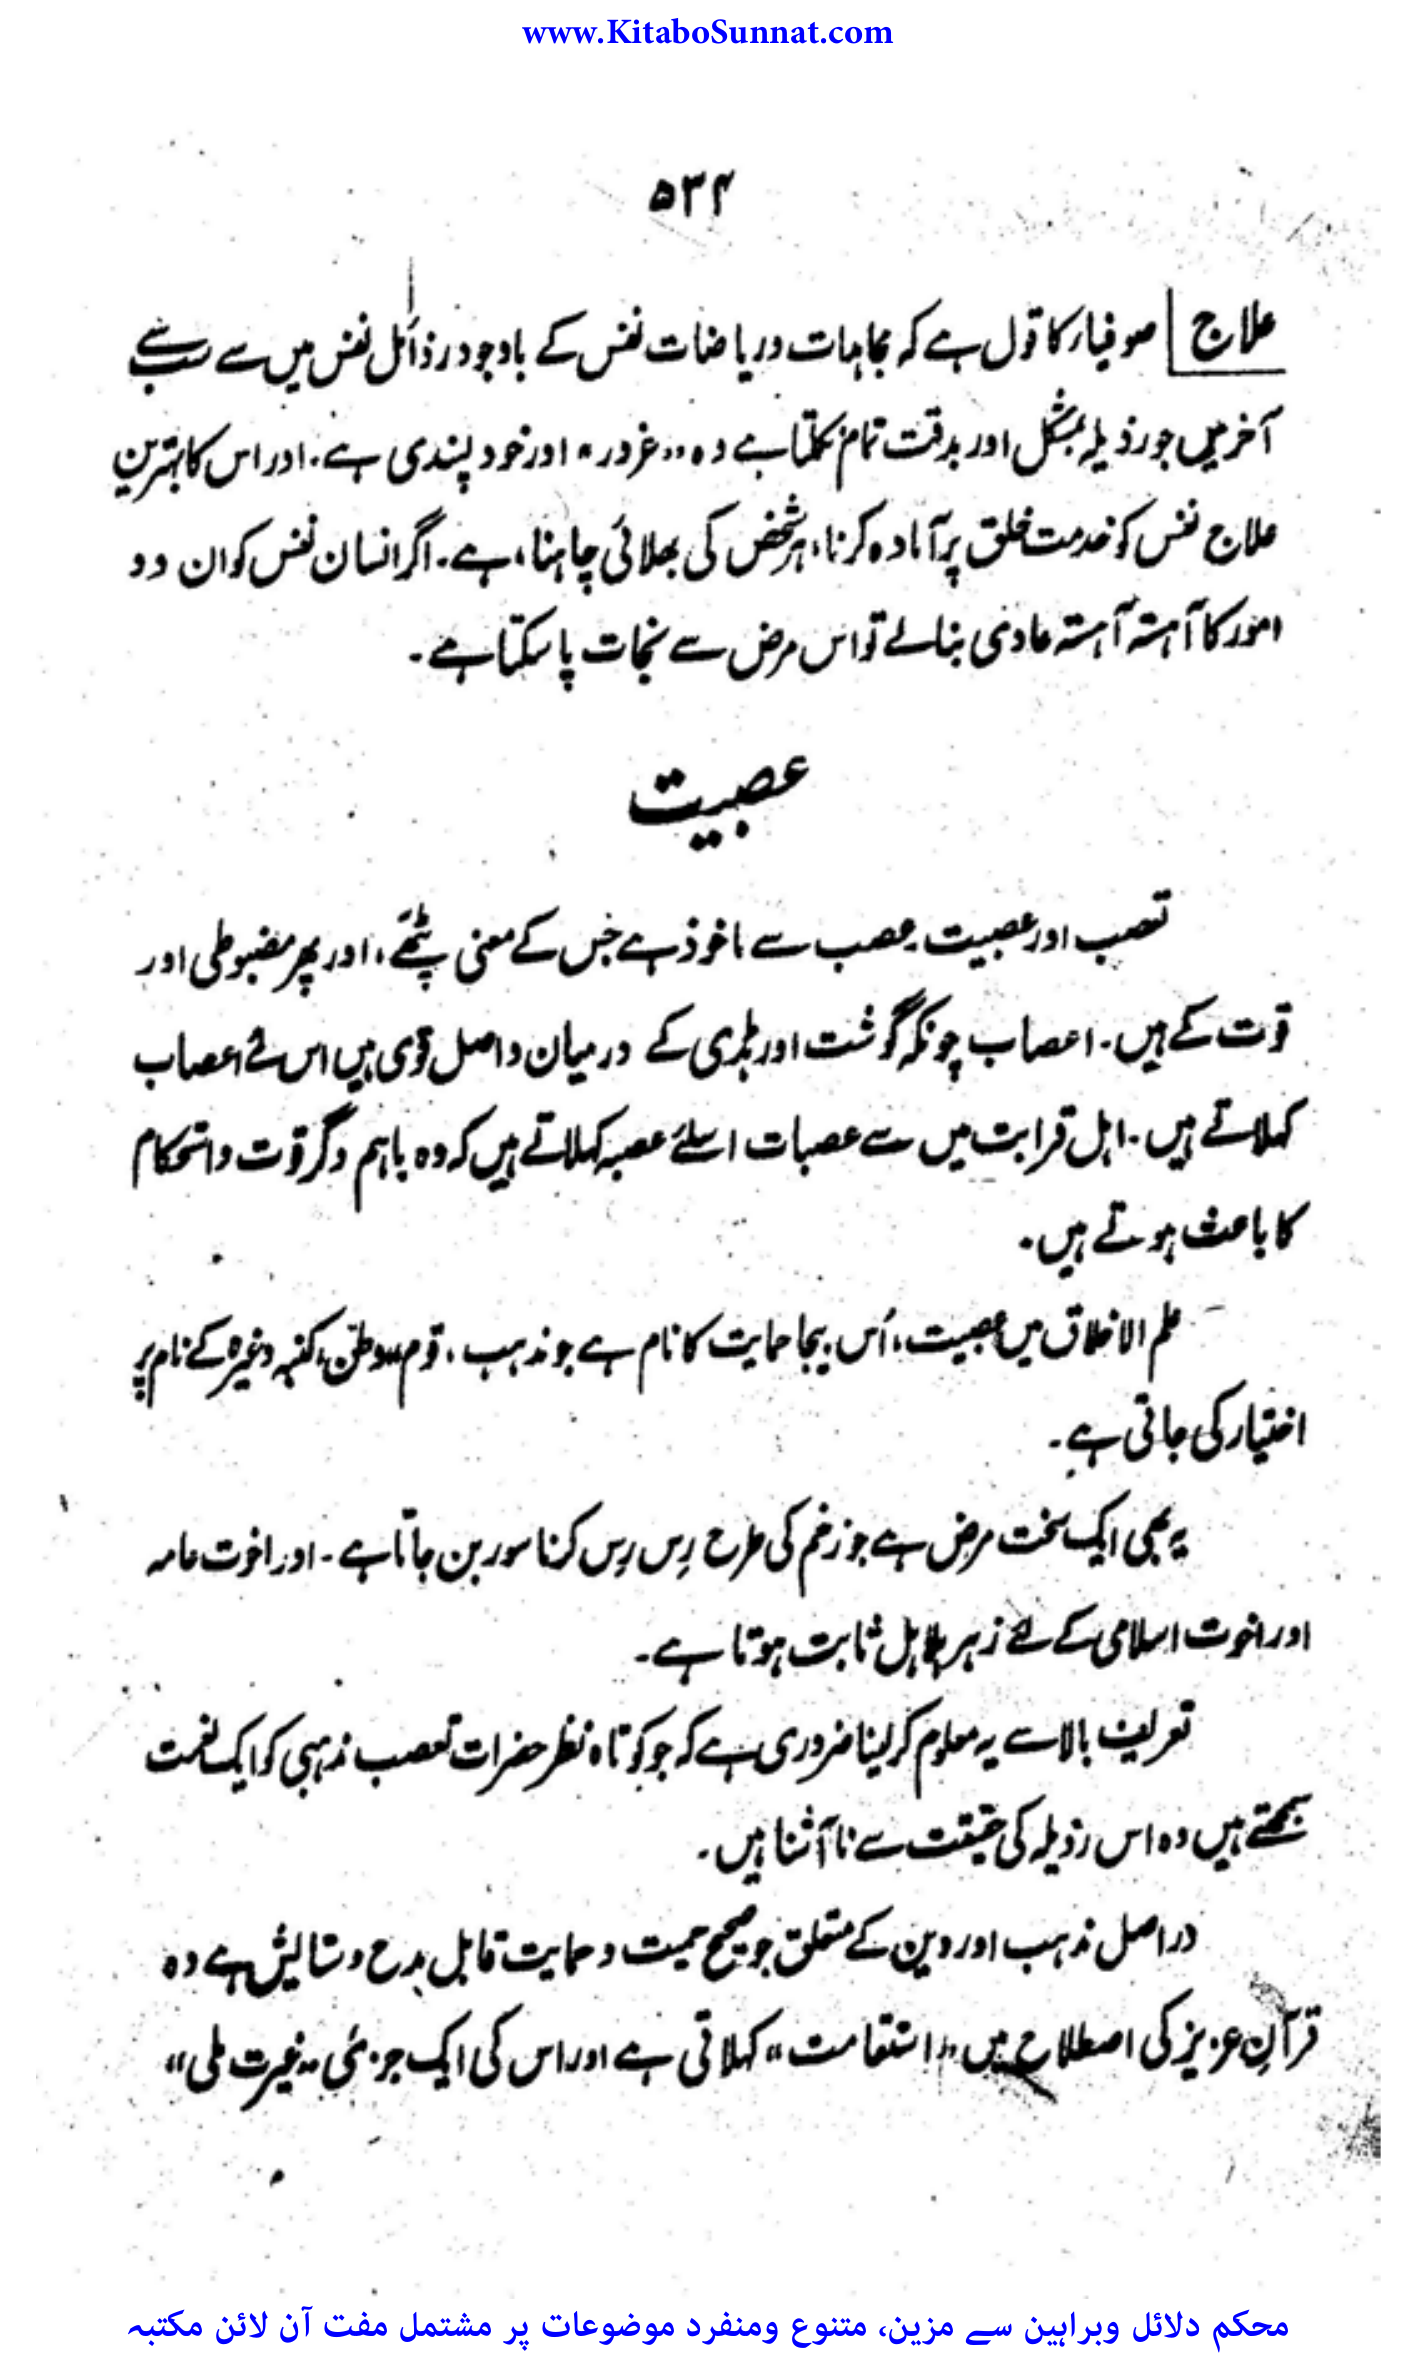 www.KitaboSunnat.com
۵۳۴
علاج صوفیار کا قول ہے کہ مجاہدات و ریاضات نفس کے باوجود رذائل نفس میں سے سب سے
آخر میں جو رذیلہ بمشکل اور بدقت تمام نکلتا ہے وہ "غرور" اور خود پسندی ہے۔ اور اس کا بہترین
علاج نفس کو خدمت خلق پر آمادہ کرنا، ہر شخص کی بھلائی چاہنا، ہے۔ اگر انسان نفس کو ان دو
امور کا آہستہ آہستہ عادی بنالے تو اس مرض سے نجات پا سکتا ہے۔
عصبیت
تعصب اور عصبیت۔ عصب سے ماخوذ ہے جس کے معنی پٹھے، اور پھر مضبوطی اور
قوت کے ہیں۔ اعصاب چونکہ گوشت اور ہڈی کے درمیان واصل قوی ہیں اس لئے اعصاب
کہلاتے ہیں۔ اہل قرابت میں سے عصبات اسلئے عصبہ کہلاتے ہیں کہ وہ باہم دگر قوت و استحکام
کا باعث ہوتے ہیں۔
علم الاخلاق میں عصبیت، اُس بیجا حمایت کا نام ہے جو مذہب، قوم، وطن، کنبہ وغیرہ کے نام پر
اختیار کی جاتی ہے۔
یہ بھی ایک سخت مرض ہے جو زخم کی طرح رِس رِس کر ناسور بن جاتا ہے۔ اور اخوت عامہ
اور اخوت اسلامی کے لئے زہر ہلاہل ثابت ہوتا ہے۔
تعریف بالا سے یہ معلوم کر لینا ضروری ہے کہ جو کوتاہ نظر حضرات تعصب مذہبی کو ایک نعمت
سمجھتے ہیں وہ اس رذیلہ کی حقیقت سے نا آشنا ہیں۔
در اصل مذہب اور دین کے متعلق جو صحیح حمیت و حمایت قابل مدح و ستایش ہے وہ
قرآنِ عزیز کی اصطلاح میں "استقامت" کہلاتی ہے اور اس کی ایک جزئی "غیرت ملی"
محکم دلائل وبراہین سے مزین، متنوع ومنفرد موضوعات پر مشتمل مفت آن لائن مکتبہ